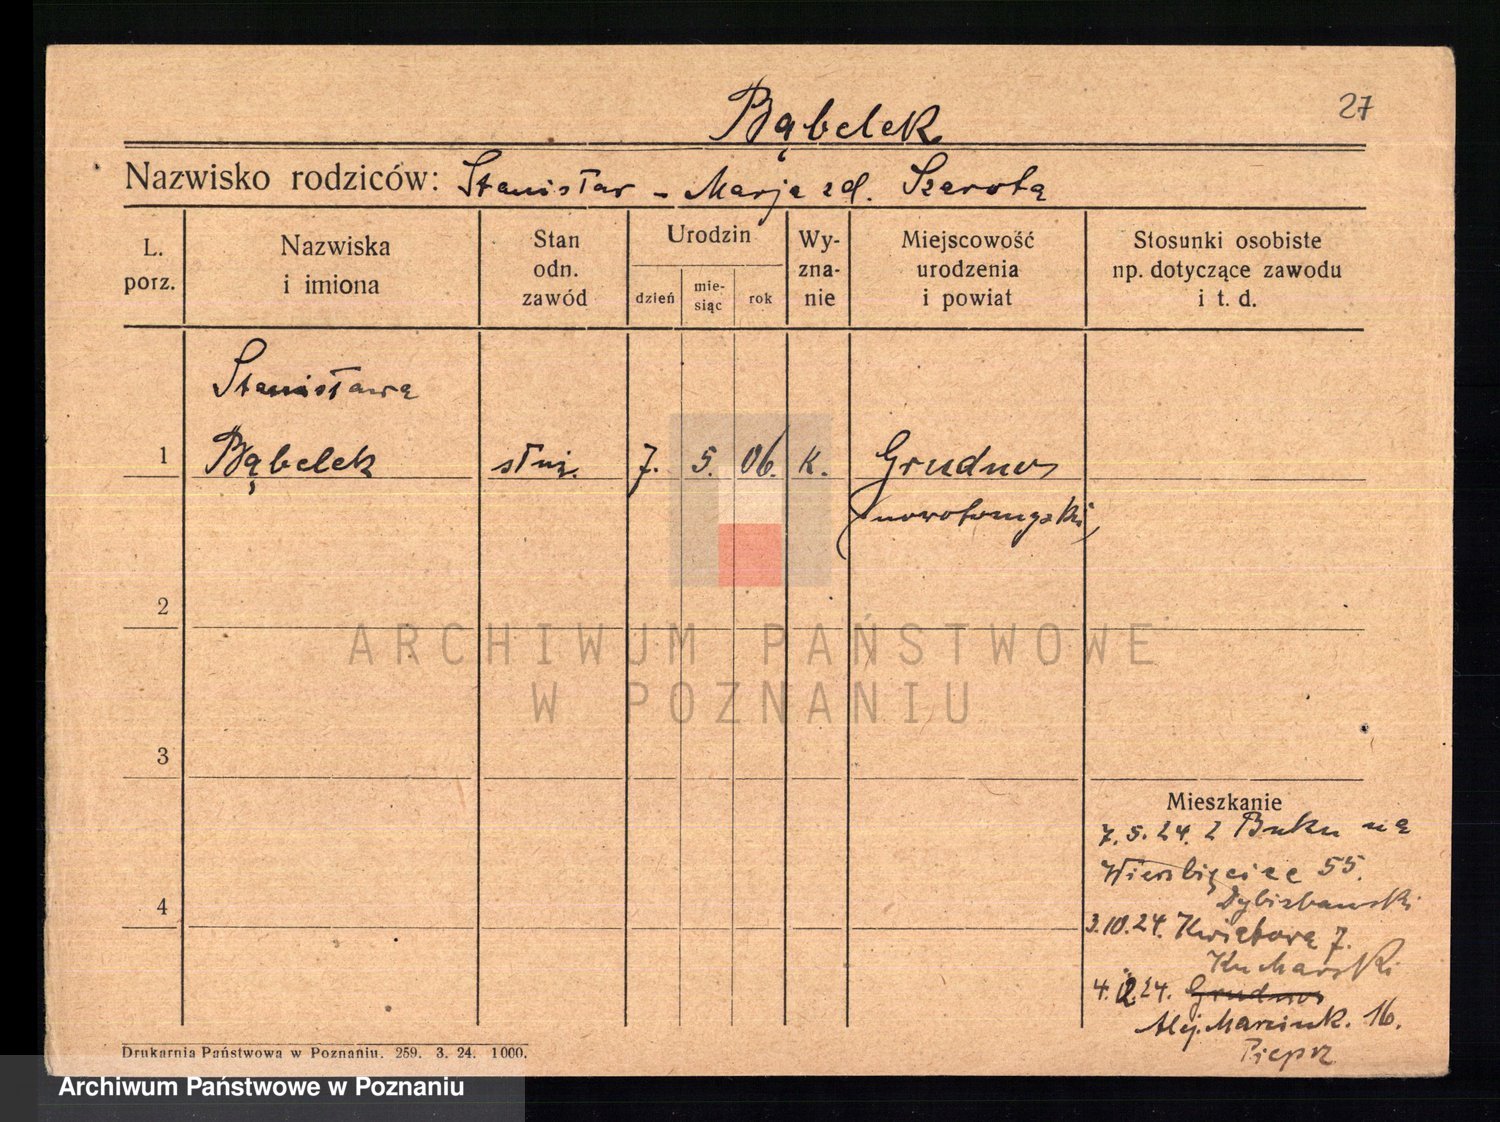 27
Bąbelek
Nazwisko rodziców: Stanisław - Marja zd. Szarotą
L. porz.
Nazwiska i imiona
Stan odn. zawód
Urodzin
dzień
mie-siąc
rok
Wy-zna-nie
Miejscowość urodzenia i powiat
Stosunki osobiste np. dotyczące zawodu i t. d.
Stanisława
1 Bąbelek służ. 7. 5. 06. k. Grudno
nowotomyski
2
ARCHIWUM PAŃSTWOWE
W POZNANIU
3
Mieszkanie
7.5.24. z Buku na
Wierzbięcice 55.
4
3.10.24. Kwiatowa 7.
Kucharski
4.12.24. Grudno
Alej. Marcink. 16.
Pieprz
Drukarnia Państwowa w Poznaniu. 259. 3. 24. 1000.
Archiwum Państwowe w Poznaniu